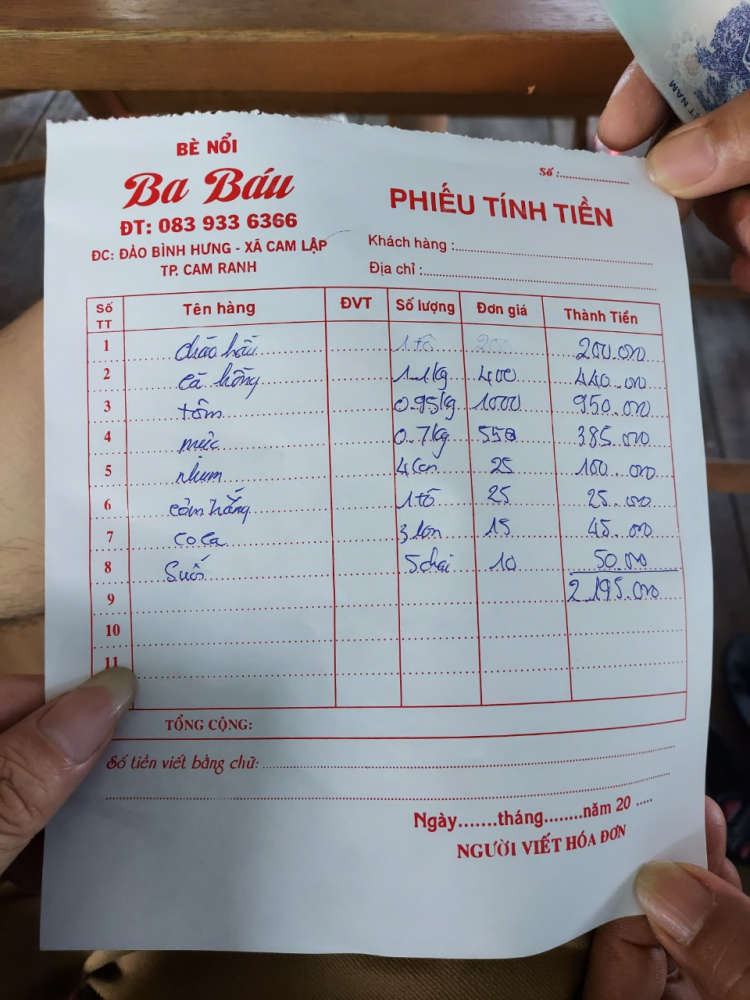 BÈ NỔI
Ba Báu
ĐT: 083 933 6366
ĐC: ĐẢO BÌNH HƯNG - XÃ CAM LẬP
TP. CAM RANH
Số :
PHIẾU TÍNH TIỀN
Khách hàng :
Địa chỉ :
Số TT Tên hàng ĐVT Số lượng Đơn giá Thành Tiền
1 cháo hàu 1 tô 200 200.000
2 cá hồng 1.1kg 400 440.000
3 tôm 0.95kg 1000 950.000
4 mực 0.7kg 550 385.000
5 nhum 4 con 25 100.000
6 cơm trắng 1 tô 25 25.000
7 coca 3 lon 15 45.000
8 Suối 5 chai 10 50.000
9 2.195.000
10
11
TỔNG CỘNG:
Số tiền viết bằng chữ:
Ngày.......tháng........năm 20 .....
NGƯỜI VIẾT HÓA ĐƠN